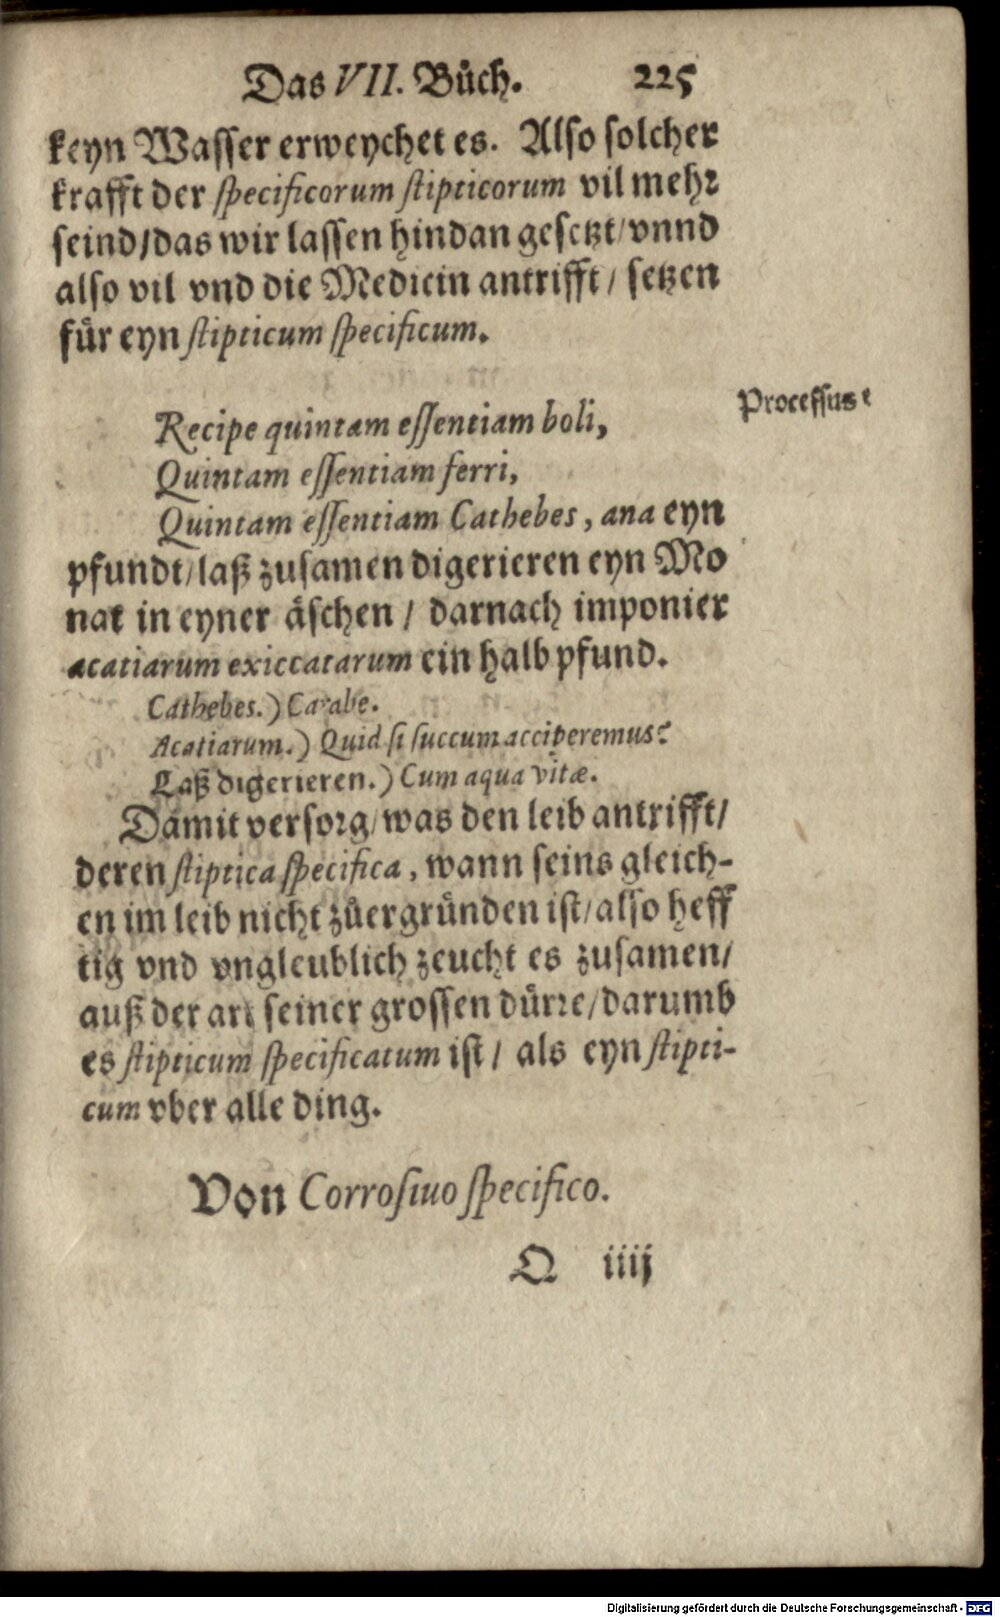 Das VII. Bůch. 225
keyn Wasser erweychet es. Also solcher
krafft der specificorum stipticorum vil mehr
seind/das wir lassen hindan gesetzt/vnnd
also vil vnd die Medicin antrifft/ setzen
für eyn stipticum specificum.
Processus
Recipe quintam essentiam boli,
Quintam essentiam ferri,
Quintam essentiam Cathebes, ana eyn
pfundt/laß zusamen digerieren eyn Mo
nat in eyner äschen / darnach imponier
acatiarum exiccatarum ein halb pfund.
Cathebes.) Carabe.
Acatiarum.) Quid si succum acciperemus?
Laß digerieren.) Cum aqua vitæ.
Damit versorg/was den leib antrifft/
deren stiptica specifica, wann seins gleich-
en im leib nicht zůergründen ist/also heff
tig vnd vngleublich zeucht es zusamen/
auß der art seiner grossen dürre/darumb
es stipticum specificatum ist/ als eyn stipti-
cum vber alle ding.
Von Corrosiuo specifico.
Q iiij
Digitalisierung gefördert durch die Deutsche Forschungsgemeinschaft - DFG